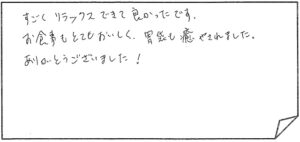 すごく リラックスできて良かったです.
お食事もとてもおいしく、胃袋も癒やされました。
ありがとうございました！